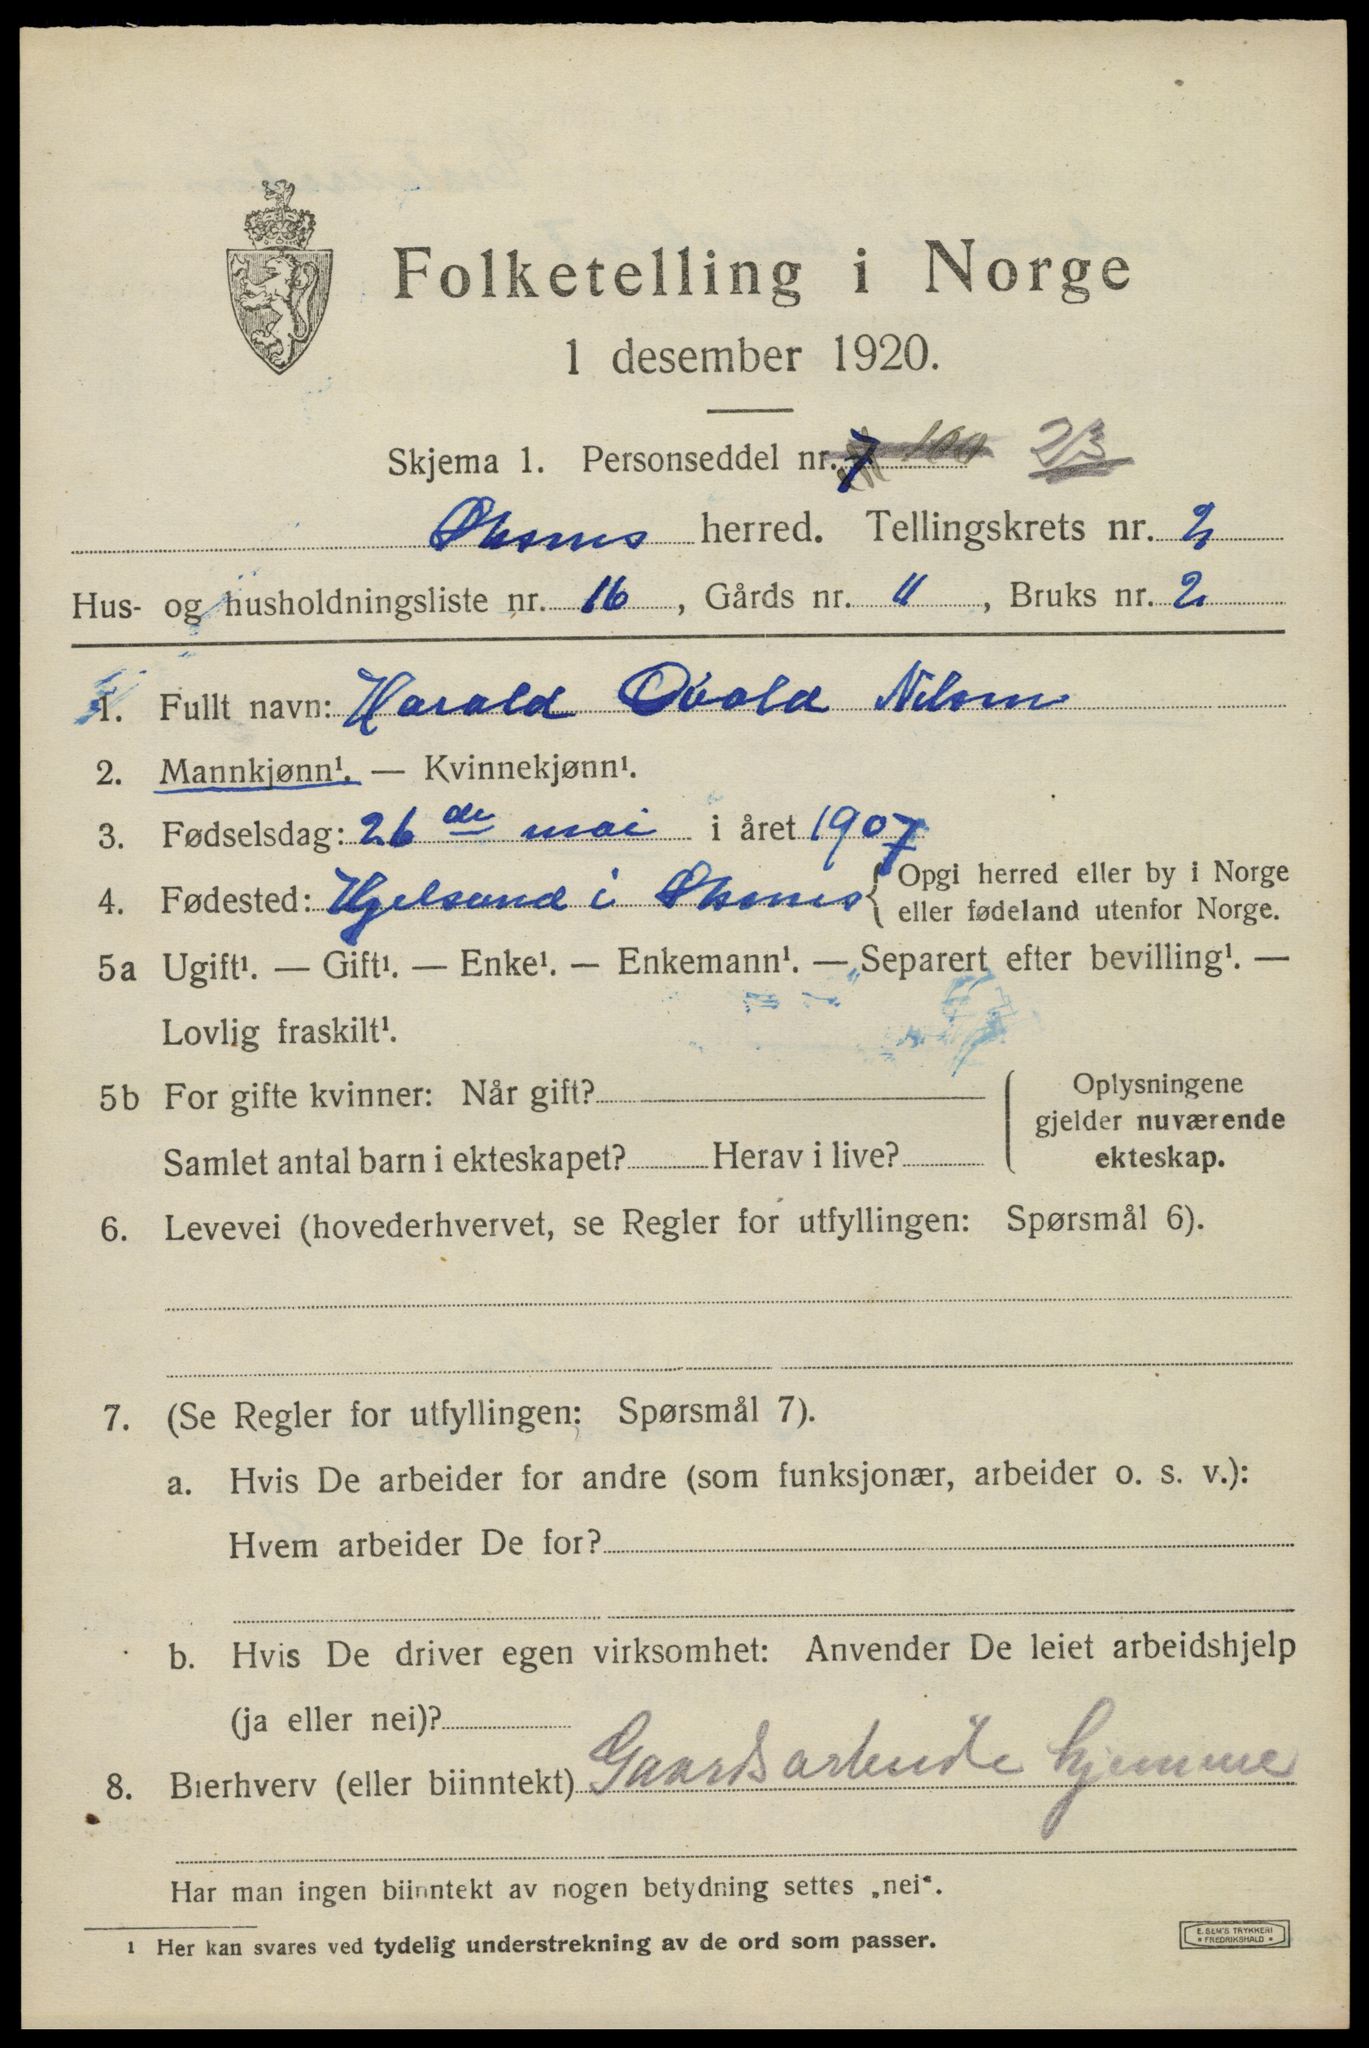 Folketelling i Norge
1 desember 1920.
Skjema 1. Personseddel nr. 7 100 23
Øksnes herred. Tellingskrets nr. 2
Hus- og husholdningsliste nr. 16, Gårds nr. 11, Bruks nr. 2
1. Fullt navn: Harald Nilsen
2. Mannkjønn¹. — Kvinnekjønn¹.
3. Fødselsdag: 26 de mai i året 1907
4. Fødested: i Øksnes { Opgi herred eller by i Norge
eller fødeland utenfor Norge.
5a Ugift¹. — Gift¹. — Enke¹. — Enkemann¹. — Separert efter bevilling¹. —
Lovlig fraskilt¹.
5b For gifte kvinner: Når gift?
Samlet antal barn i ekteskapet? Herav i live?
Oplysningene
gjelder nuværende
ekteskap.
6. Levevei (hovederhvervet, se Regler for utfyllingen: Spørsmål 6).
7. (Se Regler for utfyllingen: Spørsmål 7).
a. Hvis De arbeider for andre (som funksjonær, arbeider o. s. v.):
Hvem arbeider De for?
b. Hvis De driver egen virksomhet: Anvender De leiet arbeidshjelp
(ja eller nei)?
8. Bierhverv (eller biinntekt) Gaardsarbeide hjemme
Har man ingen biinntekt av nogen betydning settes „nei“.
1 Her kan svares ved tydelig understrekning av de ord som passer.
E. SEM'S TRYKKERI
* FREDRIKSHALD *